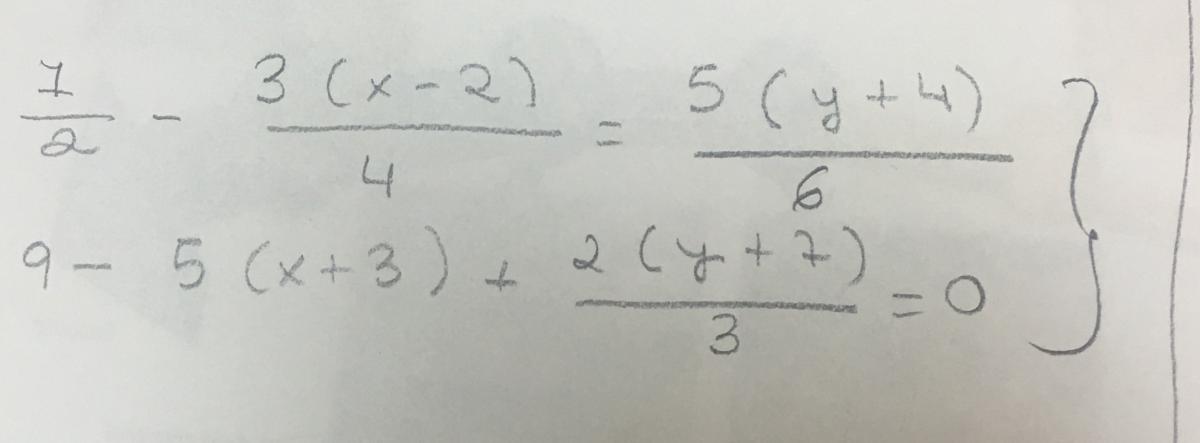 7/2 - 3(x-2)/4 = 5(y+4)/6
9 - 5(x+3) + 2(y+7)/3 = 0